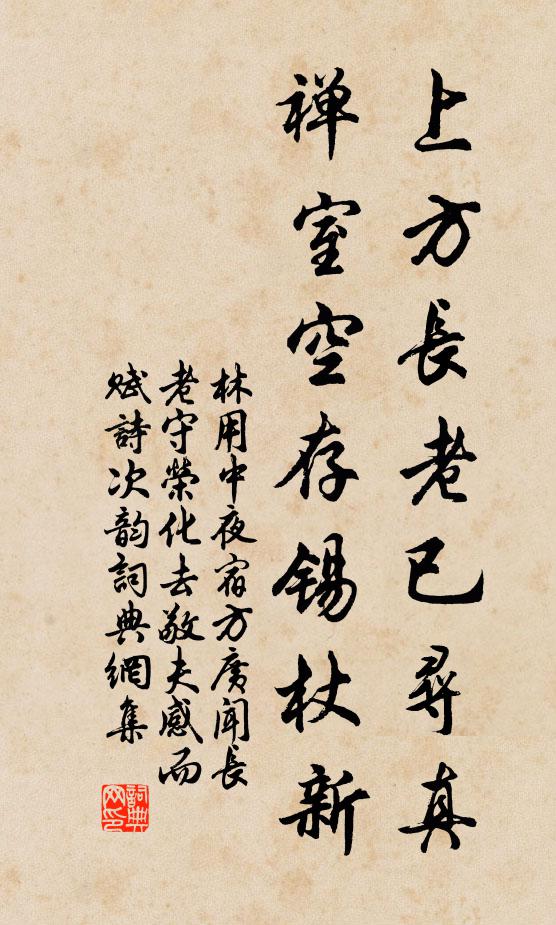 上方長老已尋真
禅室空存锡杖新
林用中夜宿方廣聞長
老守榮化去敬夫感而
赋詩次韵詞典網集
詞典
网印